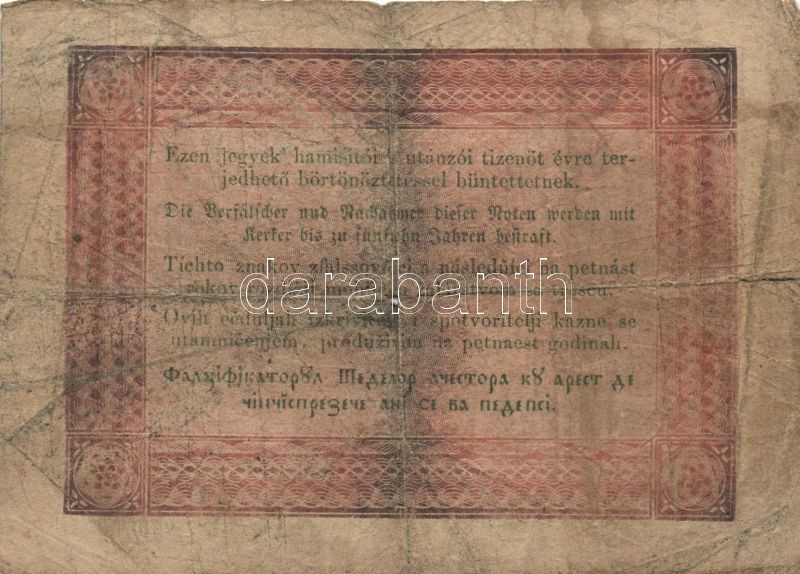 Ezen jegyek hamisitói 's utánzói tizenöt évre ter-
jedhető börtönöztetéssel büntettetnek.
Die Verfälscher und Nachahmer dieser Noten werden mit
Kerker bis zu fünfzehn Jahren bestraft.
Tichto znakov a petnást
darabanth
Ovih céduljah i spotvoritelji kazne se
utamničenjem, produživim na petnaest godinah.
Фалцȣіфікаторȣл Шеделор ачестора кȣ арест де
чінчіспрезече ані се ва педепсі.